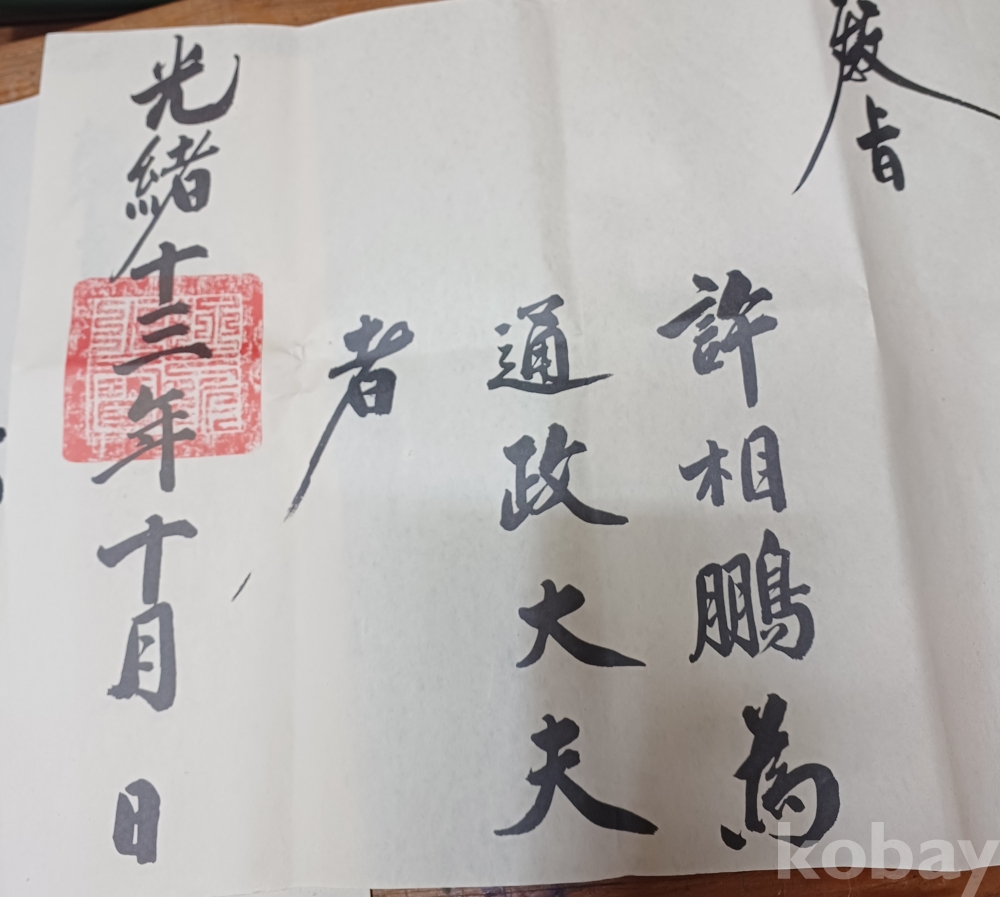 教旨
許相鵬為
通政大夫
者
光緒十三年十月 日
kobay